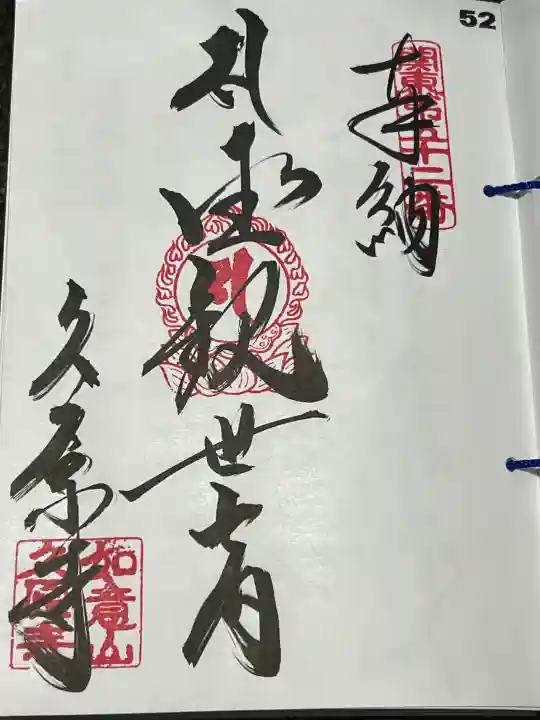 52
関東第五十二番
奉納
観世音
久原寺
如意山
久原寺